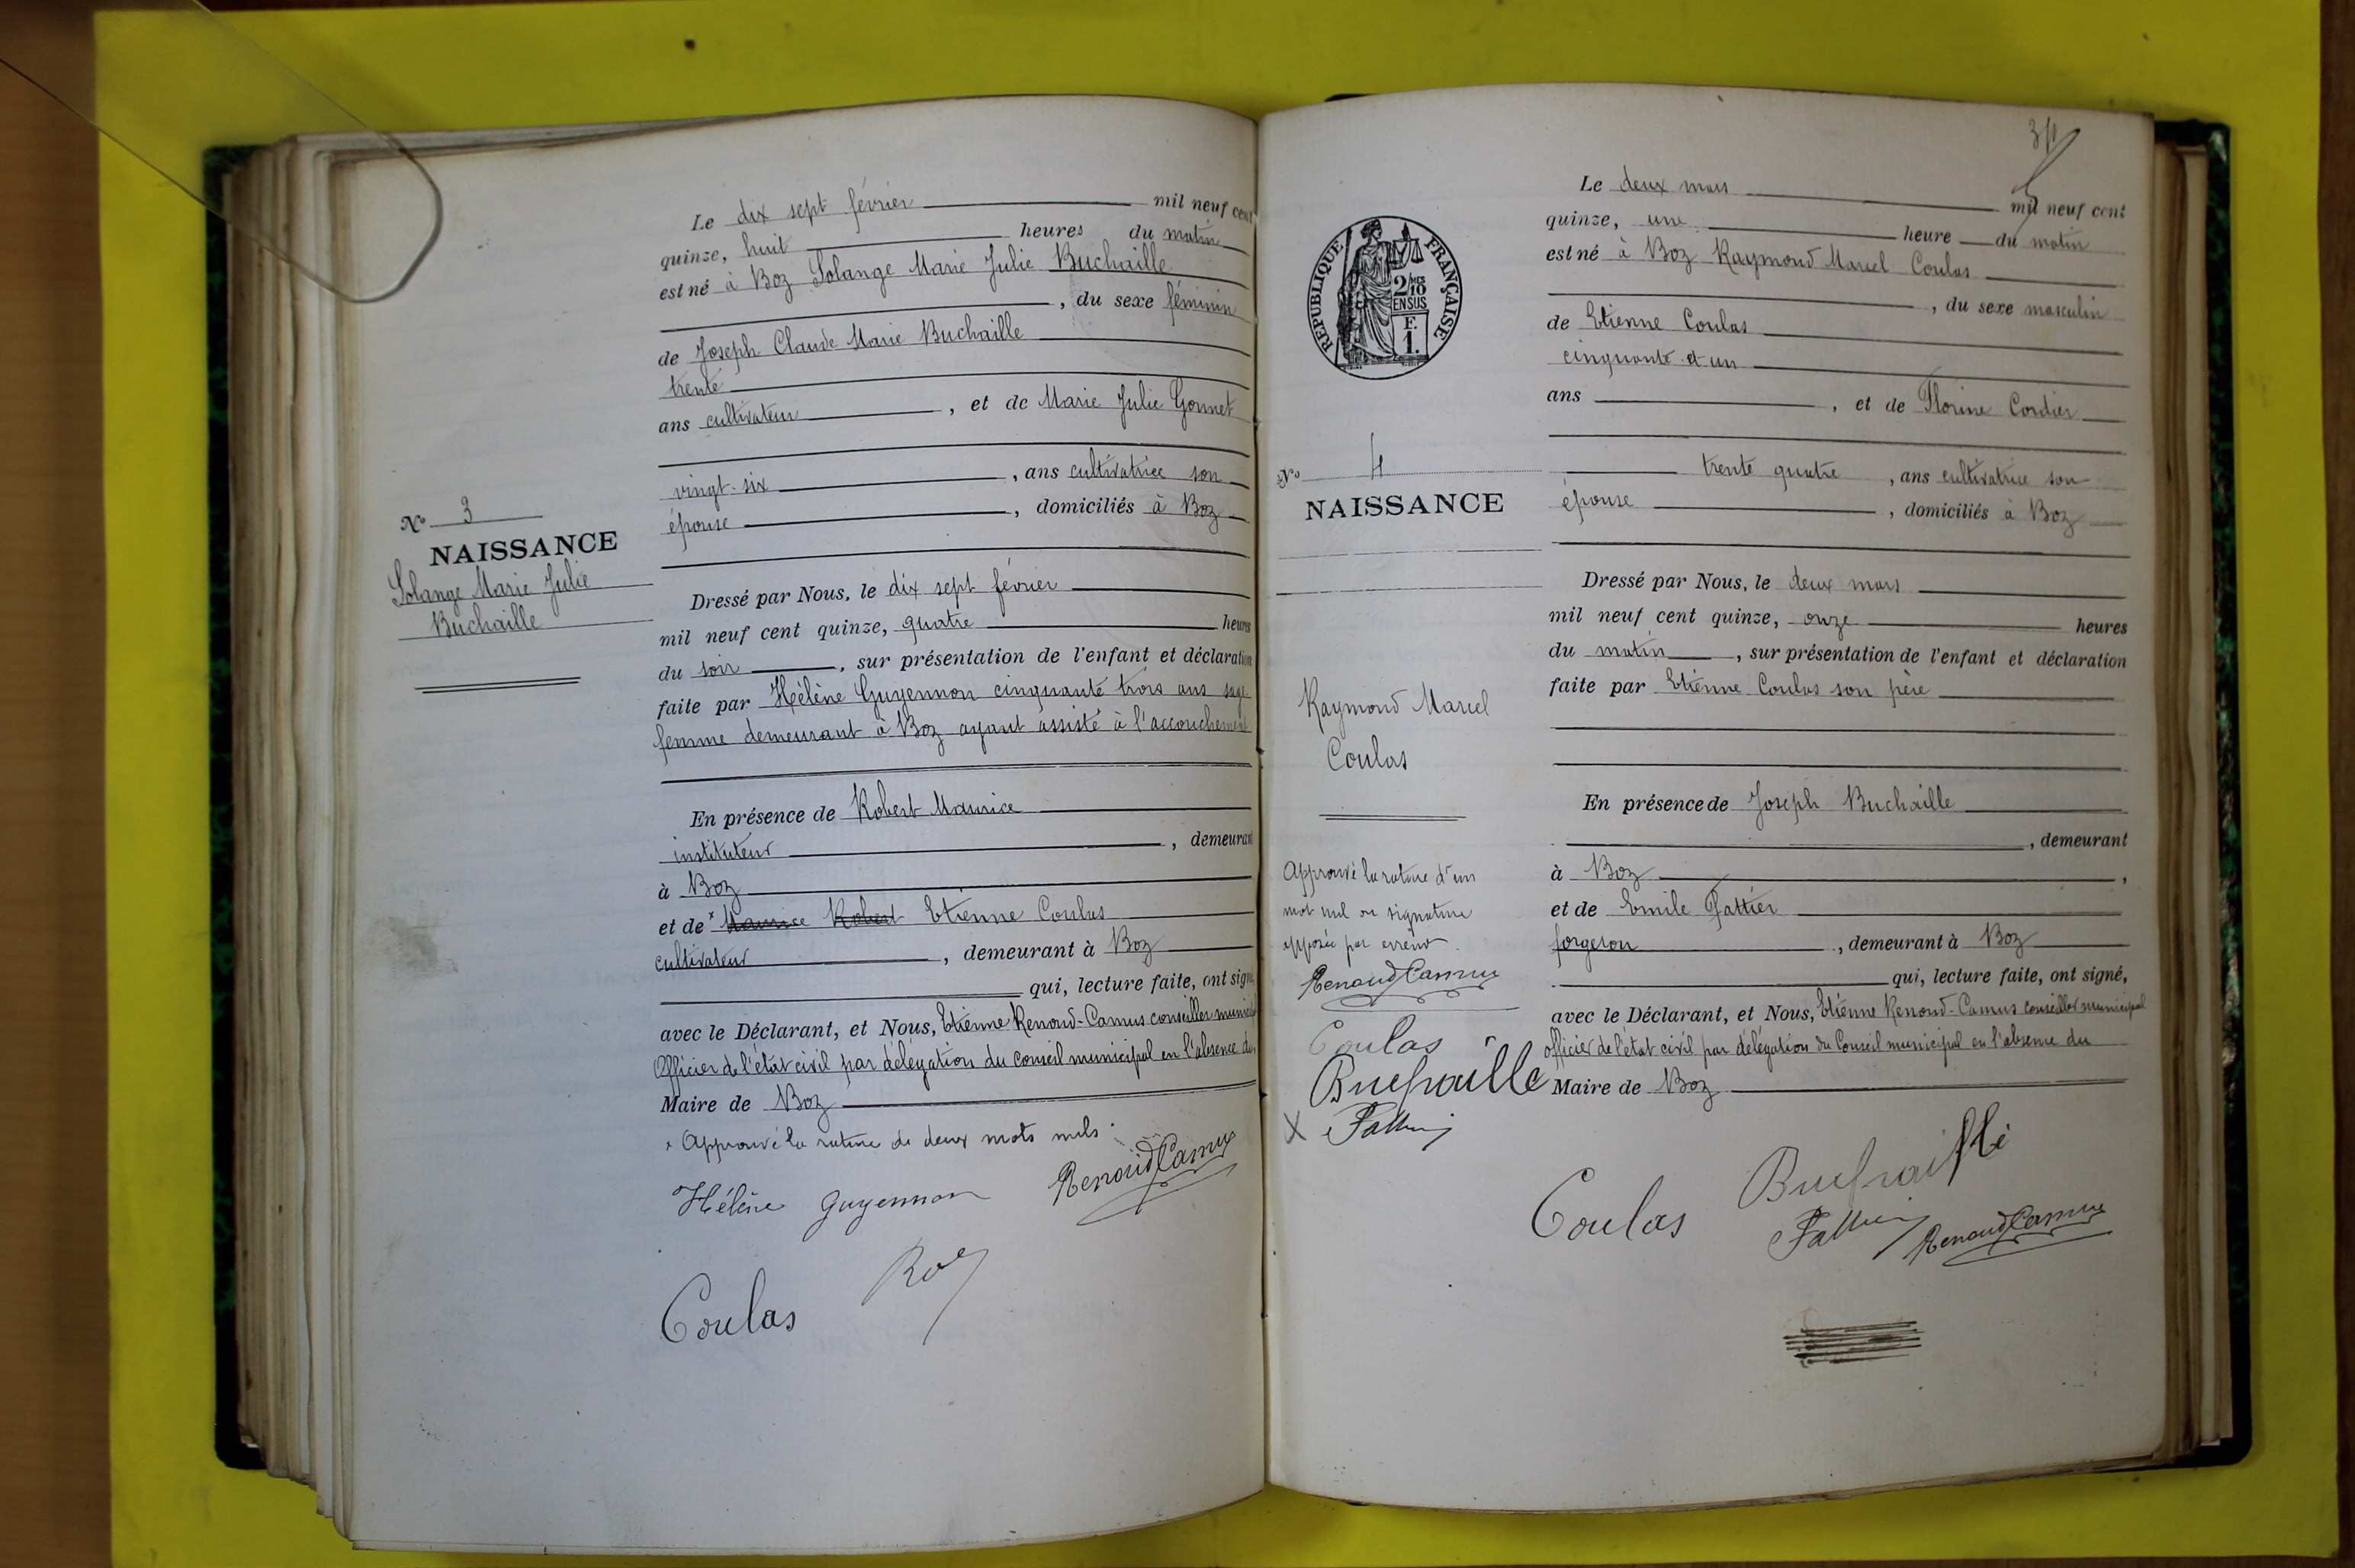 Le dix sept février mil neuf cent
quinze, huit heures du matin
est né à Boz Solange Marie Julie Buchaille
, du sexe féminin
de Joseph Claude Marie Buchaille
trente
ans cultivateur , et de Marie Julie Gonnet
vingt-six , ans cultivatrice son
épouse , domiciliés à Boz
N° 3
NAISSANCE
Solange Marie Julie
Buchaille
Dressé par Nous, le dix sept février
mil neuf cent quinze, quatre heures
du soir , sur présentation de l'enfant et déclaration
faite par Hélène Guyennon cinquante trois ans sage
femme demeurant à Boz ayant assisté à l'accouchement
En présence de Robert Maurice
instituteur , demeurant
à Boz
et de * Maurice Robert Etienne Coulas
cultivateur , demeurant à Boz
qui, lecture faite, ont signé
avec le Déclarant, et Nous, Etienne Renoud-Camus conseiller municipal
Officier de l'état civil par délégation du conseil municipal en l'absence du
Maire de Boz
* Approuvé la rature de deux mots nuls.
Hélène Guyennon RenoudCamus
Coulas
Le deux mars mil neuf cent
quinze, une heure du matin
est né à Boz Raymond Marcel Coulas
, du sexe masculin
de Etienne Coulas
cinquante et un
ans , et de Florine Cordier
trente quatre , ans cultivatrice son
épouse , domiciliés à Boz
RÉPUBLIQUE FRANÇAISE
2/10
EN SUS
F.
1.
N° 4
NAISSANCE
Raymond Marcel
Coulas
Dressé par Nous, le deux mars
mil neuf cent quinze, onze heures
du matin , sur présentation de l'enfant et déclaration
faite par Etienne Coulas son père
En présence de Joseph Buchaille
, demeurant
à Boz ,
et de Emile Fattier
forgeron , demeurant à Boz
qui, lecture faite, ont signé,
avec le Déclarant, et Nous, Etienne Renoud-Camus conseiller municipal
officier de l'état civil par délégation du Conseil municipal en l'absence du
Maire de Boz
Approuvé la rature d'un
mot nul ou signature
apposée par erreur.
RenoudCamus
Coulas
Buchaille
X Fattier
Buchaille
Coulas Fattier RenoudCamus